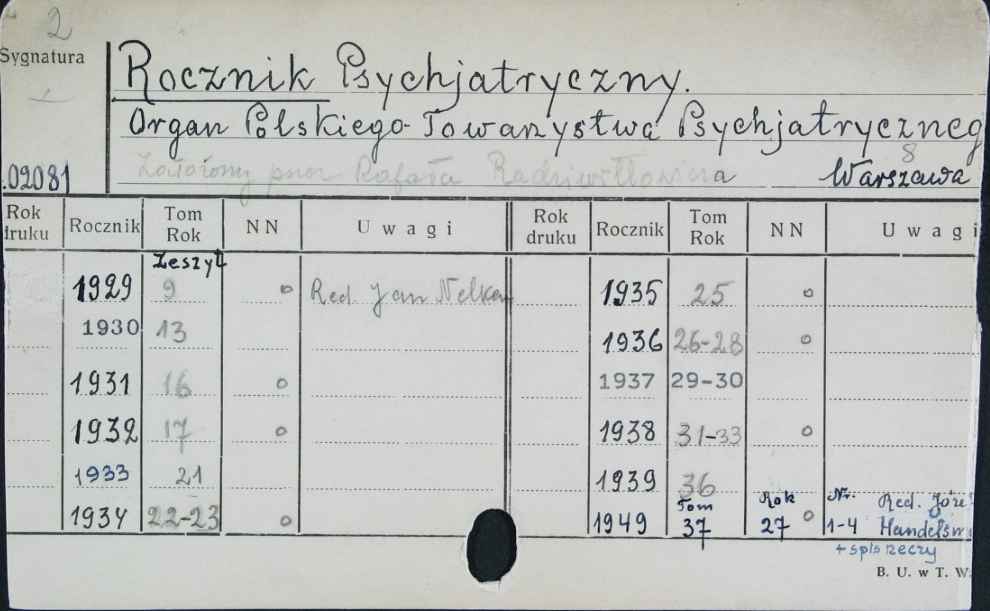 2
Sygnatura
Rocznik Psychjatryczny.
Organ Polskiego Towarzystwa Psychjatryczneg
8
.02081 Założony przez Rafała Warszawa
Rok druku Rocznik Tom Rok NN Uwagi Rok druku Rocznik Tom Rok NN Uwagi
Zeszyt
1929 9 o Red. Jan Nelken 1935 25 o
1930 13 1936 26-28 o
1931 16 o 1937 29-30
1932 17 o 1938 31-33 o
1933 21 1939 36
Tom Rok Nr. Red. Józe
1934 22-23 o 1949 37 27 o 1-4 Handelsm
+ spis rzeczy
B. U. w T. W.